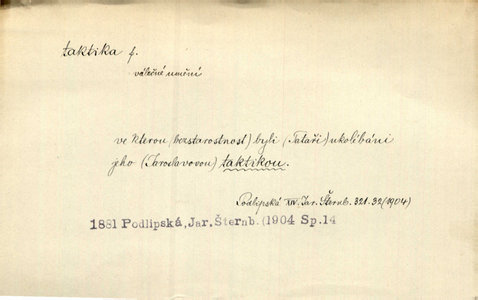 taktika f.
válečné umění
ve kterou (bezstarostnost) byli (Tataři) ukolébáni
jeho (Jaroslavovou) taktikou.
Podlipská XIV. Jar. Šternb. 321.32 (1904)
1881 Podlipská, Jar. Šternb. (1904 Sp.14